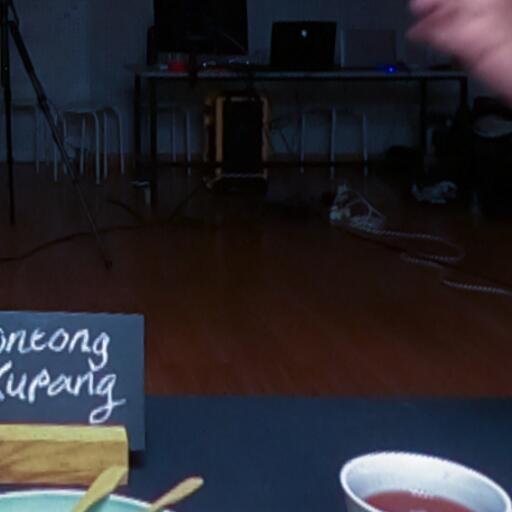 ontong
Kupang